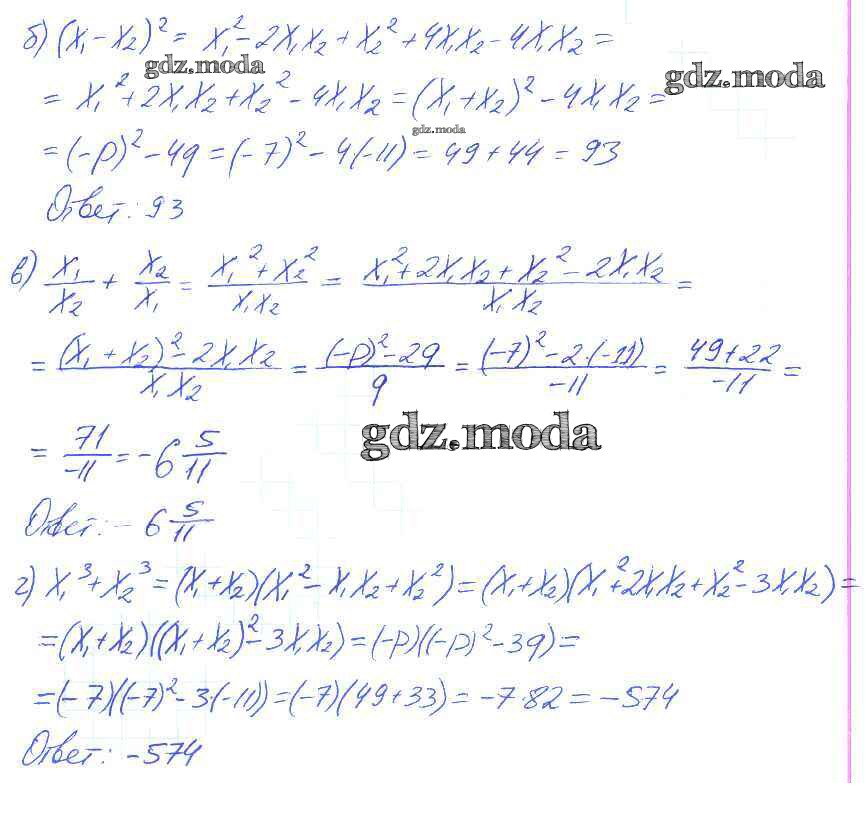 б) (x₁ - x₂)² = x₁² - 2x₁x₂ + x₂² + 4x₁x₂ - 4x₁x₂ =
gdz.moda
gdz.moda
= x₁² + 2x₁x₂ + x₂² - 4x₁x₂ = (x₁ + x₂)² - 4x₁x₂ =
gdz.moda
= (-p)² - 4q = (-7)² - 4(-11) = 49 + 44 = 93
Ответ: 93
в) x₁/x₂ + x₂/x₁ = (x₁² + x₂²)/(x₁x₂) = (x₁² + 2x₁x₂ + x₂² - 2x₁x₂)/(x₁x₂) =
= ((x₁ + x₂)² - 2x₁x₂)/(x₁x₂) = ((-p)² - 2q)/q = ((-7)² - 2·(-11))/(-11) = (49 + 22)/(-11) =
gdz.moda
= 71/(-11) = -6 5/11
Ответ: -6 5/11
г) x₁³ + x₂³ = (x₁ + x₂)(x₁² - x₁x₂ + x₂²) = (x₁ + x₂)(x₁² + 2x₁x₂ + x₂² - 3x₁x₂) =
= (x₁ + x₂)((x₁ + x₂)² - 3x₁x₂) = (-p)((-p)² - 3q) =
= (-7)((-7)² - 3(-11)) = (-7)(49 + 33) = -7·82 = -574
Ответ: -574